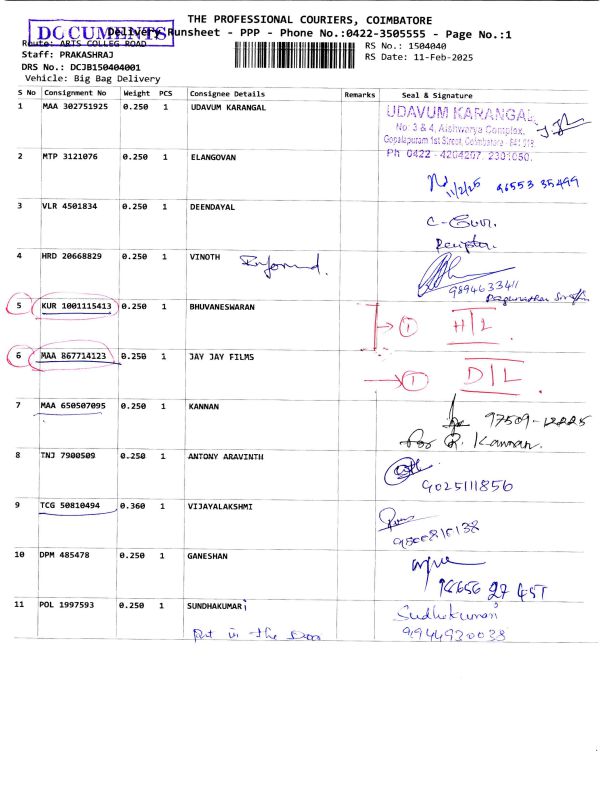 THE PROFESSIONAL COURIERS, COIMBATORE
DOCUMENTS
Delivery Runsheet - PPP - Phone No.:0422-3505555 - Page No.:1
Route: ARTS COLLEG ROAD
RS No.: 1504040
Staff: PRAKASHRAJ
RS Date: 11-Feb-2025
DRS No.: DCJB150404001
Vehicle: Big Bag Delivery
S No Consignment No Weight PCS Consignee Details Remarks Seal & Signature
1 MAA 302751925 0.250 1 UDAVUM KARANGAL
UDAVUM KARANGAL
No. 3 & 4, Aishwarya Complex,
Gopalapuram 1st Street, Coimbatore - 641 018
Ph 0422 - 4204267, 2301050.
2 MTP 3121076 0.250 1 ELANGOVAN
11/2/25 96553 35499
3 VLR 4501834 0.250 1 DEENDAYAL
4 HRD 20668829 0.250 1 VINOTH Informed.
9894633411
5 KUR 1001115413 0.250 1 BHUVANESWARAN
1 H/L
6 MAA 867714123 0.250 1 JAY JAY FILMS
1 D/L
7 MAA 650507095 0.250 1 KANNAN
for R. Kannan.
8 TNJ 7900509 0.250 1 ANTONY ARAVINTH
9025111856
9 TCG 50810494 0.360 1 VIJAYALAKSHMI
10 DPM 485478 0.250 1 GANESHAN
11 POL 1997593 0.250 1 SUNDHAKUMARi
Sudhakumari
Put in the Door
9944930038